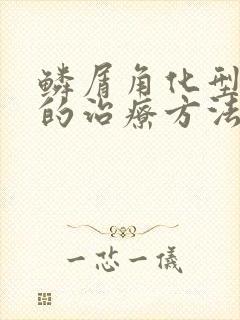 鳞屑角化型
的治療方法
一芯一儀